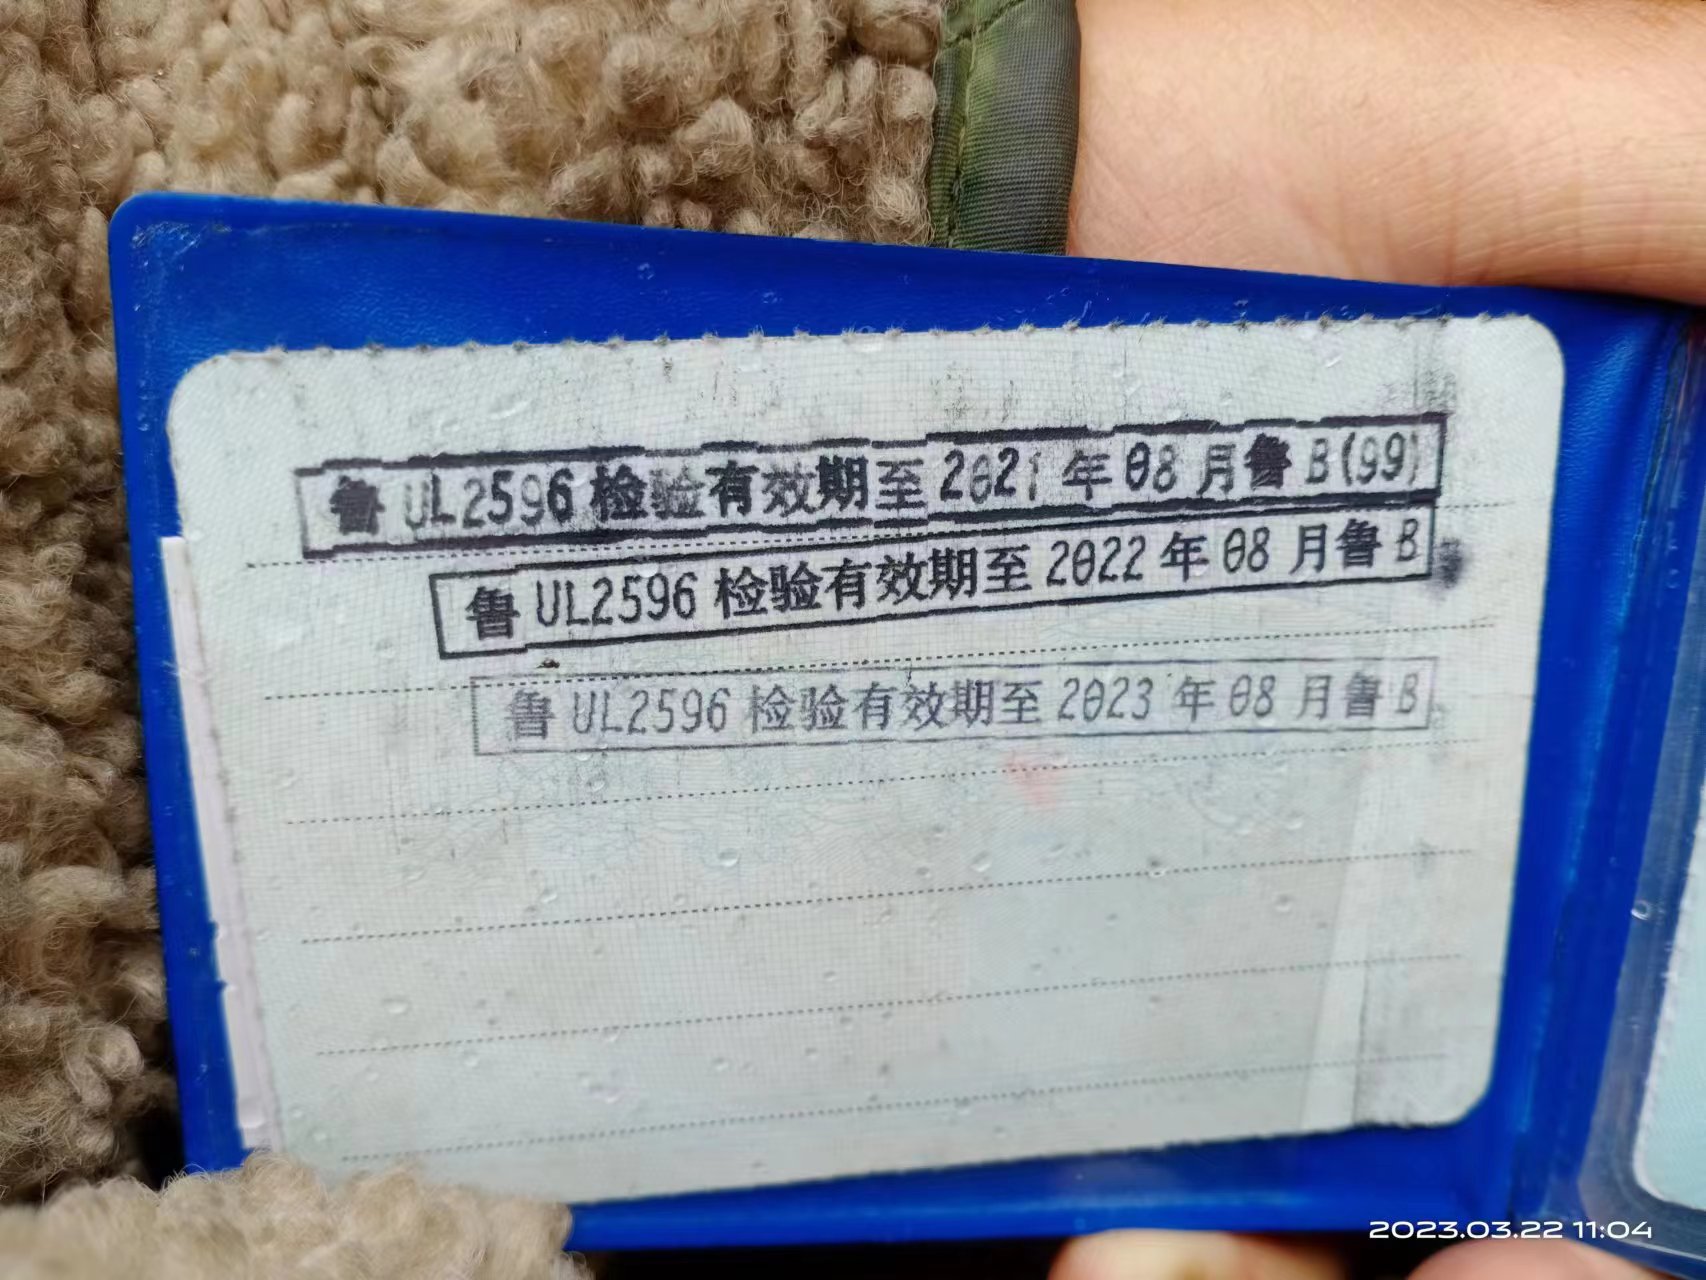 鲁UL2596检验有效期至2021年08月鲁B(99)
鲁UL2596检验有效期至2022年08月鲁B
鲁UL2596检验有效期至2023年08月鲁B
2023.03.22 11:04